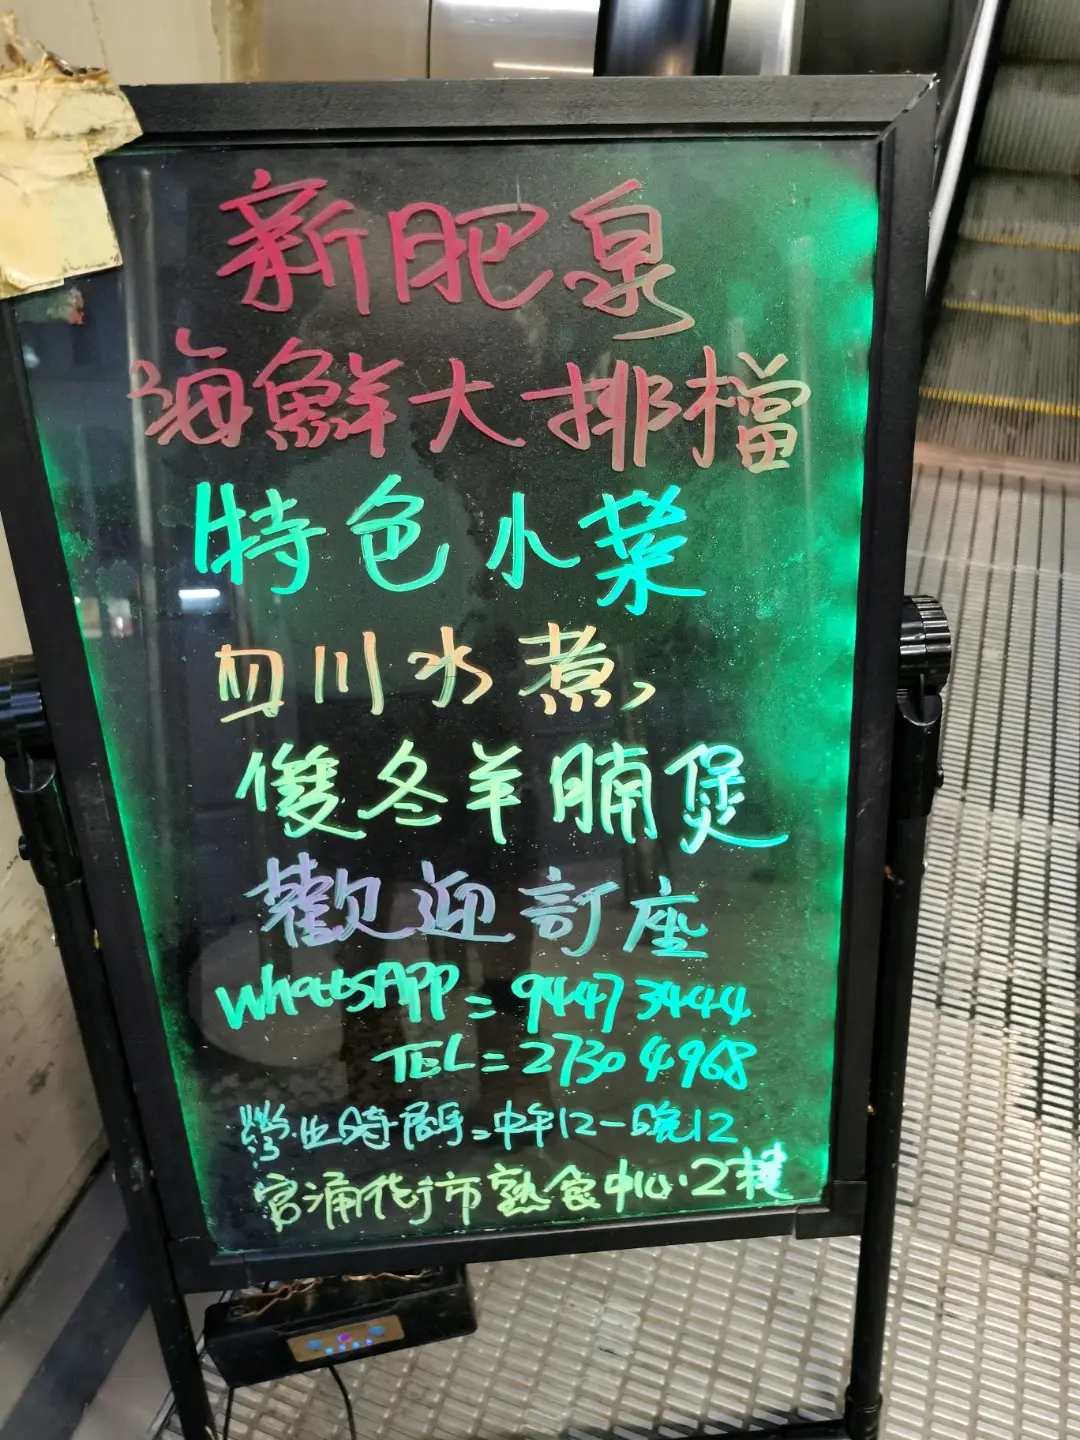 新肥泉
海鮮大排檔
特色小菜
四川水煮,
雙冬羊腩煲
歡迎訂座
WhatsAPP = 9447 3444
TEL = 2730 4968
營业時間 = 中午12-晚12
官涌街市熟食中心·2樓